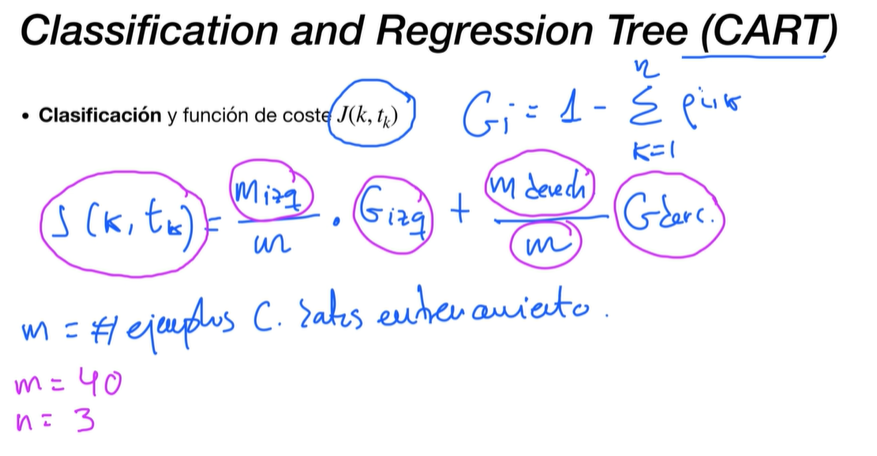 Classification and Regression Tree (CART)
• Clasificación y función de coste J(k, tₖ)
Gᵢ = 1 - Σ_{k=1}^{n} ρᵢ,ₖ
J(k, tₖ) = m izq / m · G izq + m derech / m G derc.
m = # ejemplos C. datos entrenamiento.
m = 40
n = 3